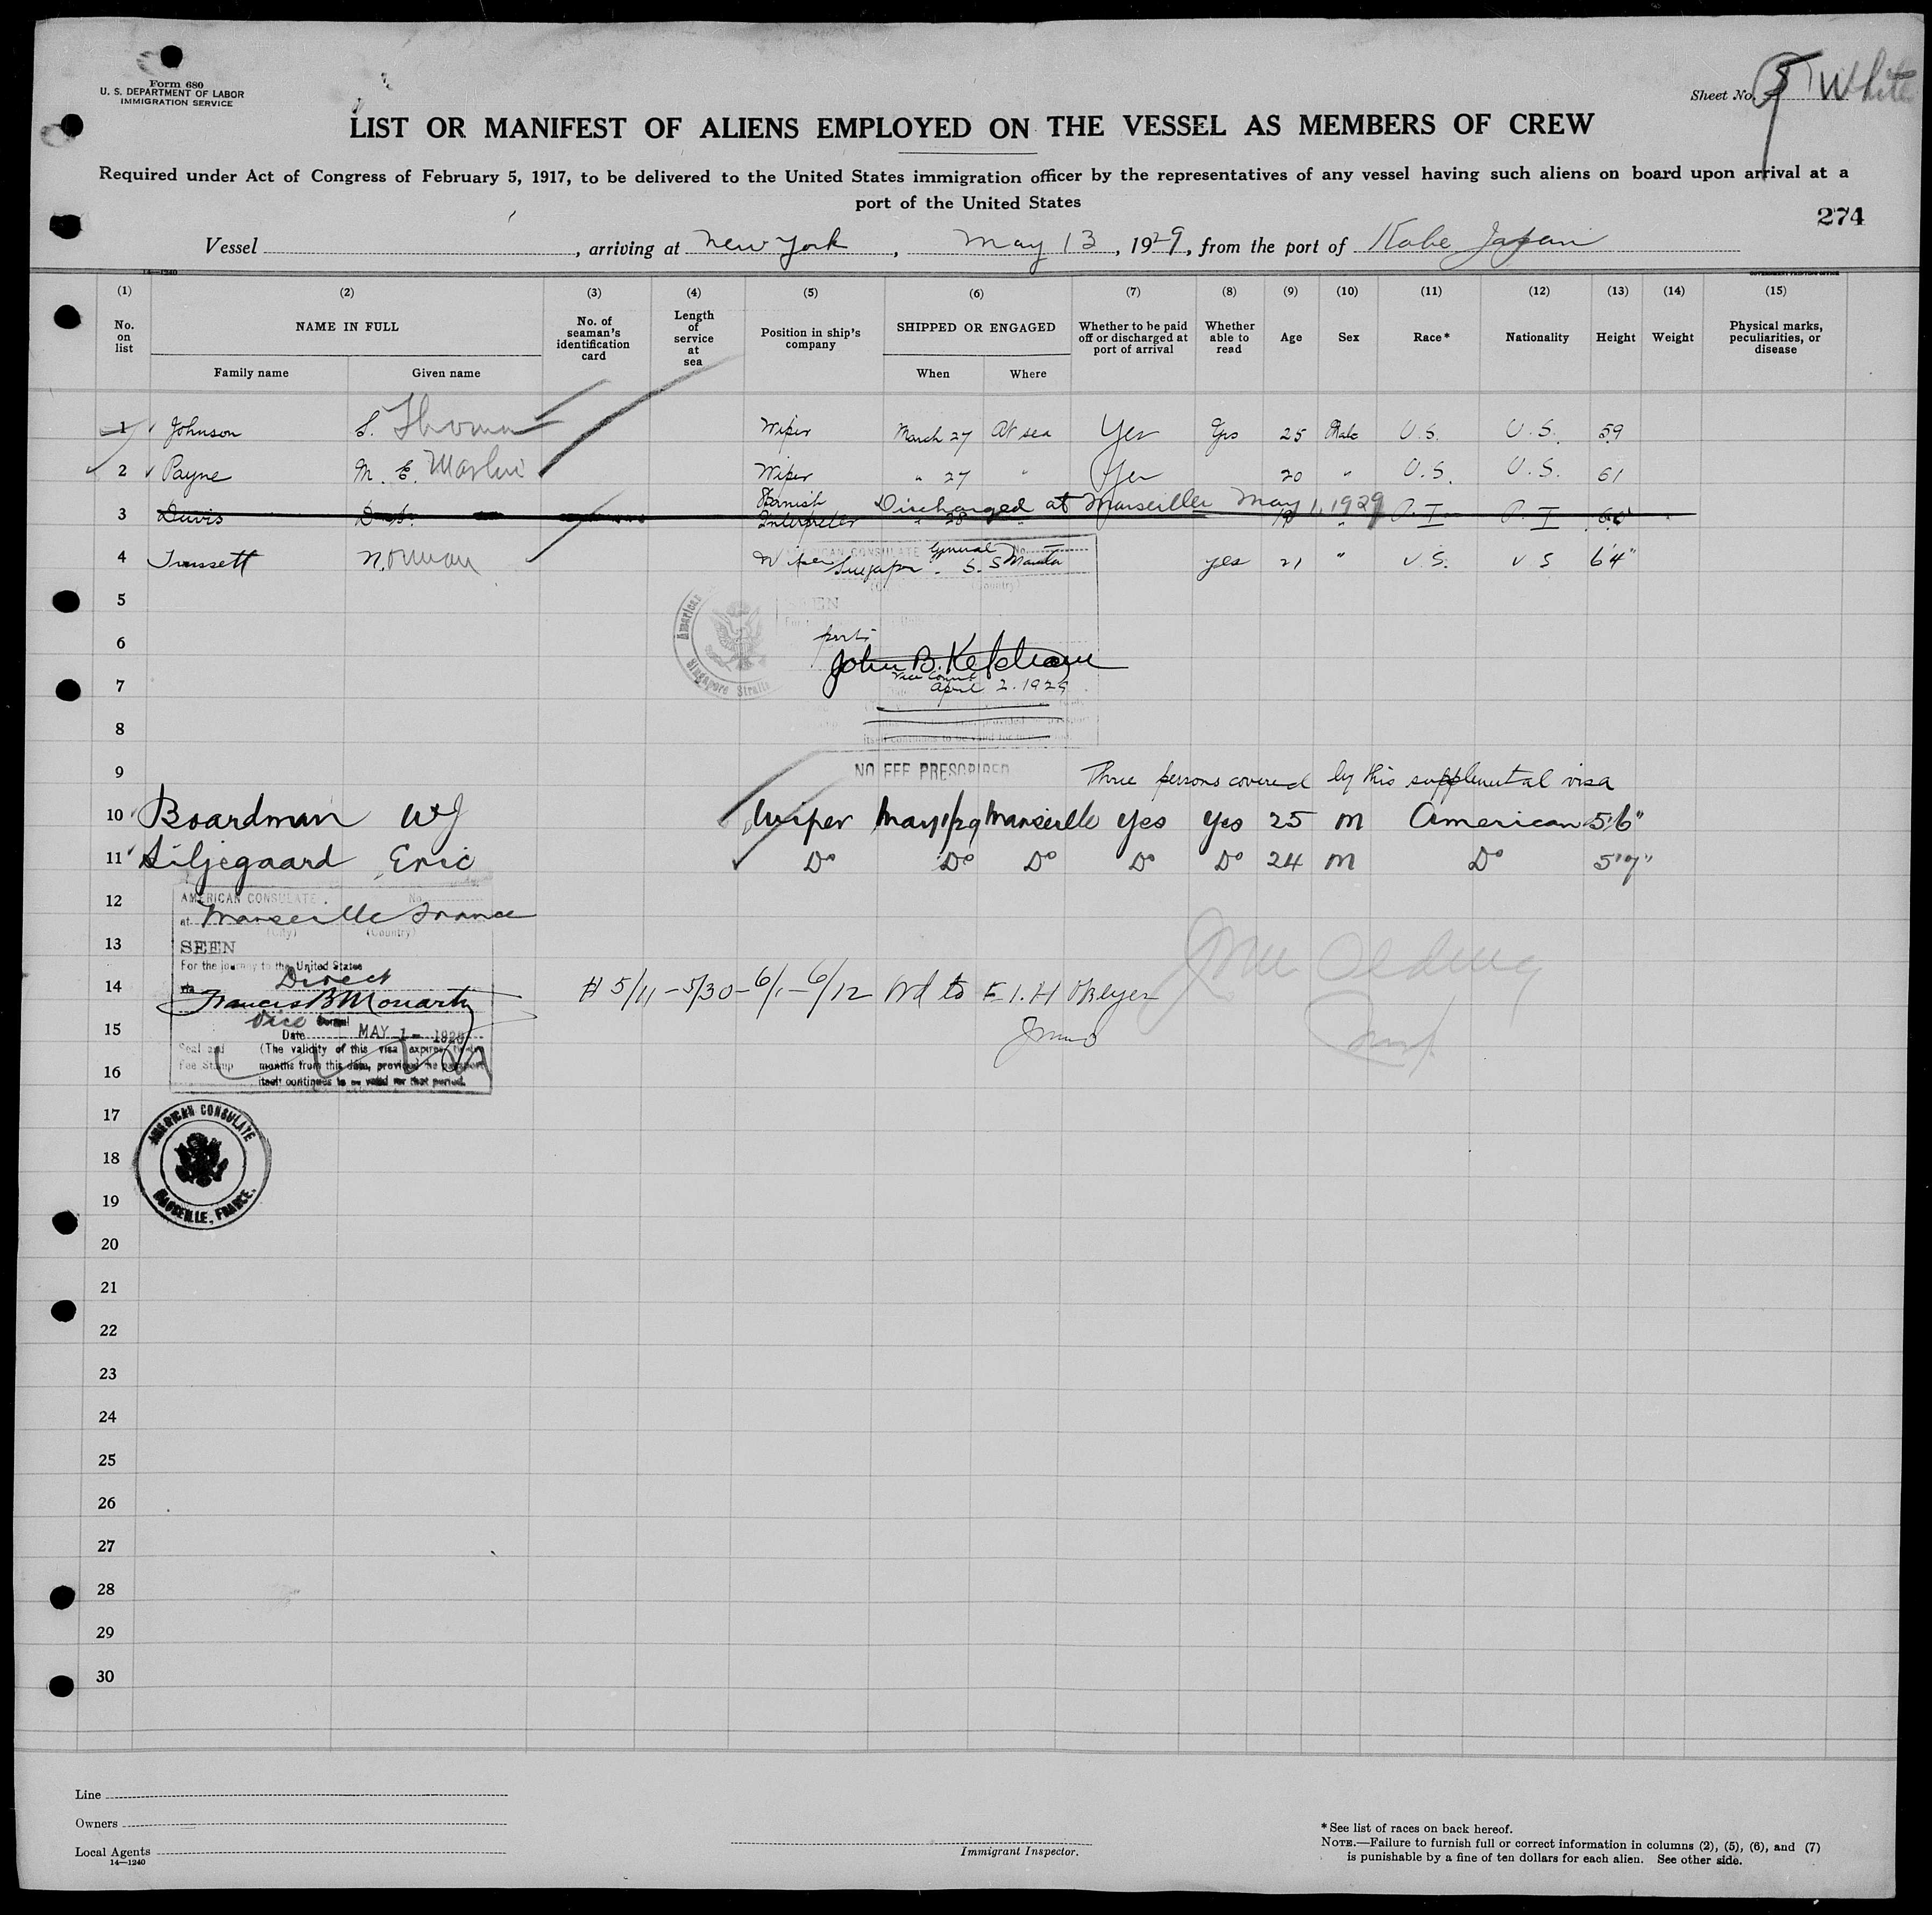 Form 680
U. S. DEPARTMENT OF LABOR
IMMIGRATION SERVICE
Sheet No. White
LIST OR MANIFEST OF ALIENS EMPLOYED ON THE VESSEL AS MEMBERS OF CREW
Required under Act of Congress of February 5, 1917, to be delivered to the United States immigration officer by the representatives of any vessel having such aliens on board upon arrival at a
port of the United States
274
Vessel , arriving at New York , May 13 , 1929, from the port of Kobe Japan
14—1240
GOVERNMENT PRINTING OFFICE
(1) (2) (3) (4) (5) (6) (7) (8) (9) (10) (11) (12) (13) (14) (15)
No. on list NAME IN FULL No. of seaman's identification card Length of service at sea Position in ship's company SHIPPED OR ENGAGED Whether to be paid off or discharged at port of arrival Whether able to read Age Sex Race* Nationality Height Weight Physical marks, peculiarities, or disease
Family name Given name When Where
1 Johnson S. Thomas Wiper March 27 At sea Yes Yes 25 Male U.S. U.S. 59
2 Payne M. E. Wiper " 27 " Yes 20 " U.S. U.S. 61
3 Davis Interpreter Discharged at Marseilles May 1, 1929 " 28 " P.I. P.I.
4 Norman Wiper yes 21 " U.S. U S 6'4"
AMERICAN CONSULATE General No.
Singapore S. S.
(Country)
5
SEEN
6
John B. Ketcham
Vice Consul
7 April 2. 1929
8
itself continues to be valid for
9 NO FEE PRESCRIBED Three persons covered by this supplemental visa
10 Boardman WJ Wiper May 1/29 Marseille Yes Yes 25 M American 5'6"
11 Siljegaard Eric Do Do Do Do Do 24 M Do 5'7"
12 AMERICAN CONSULATE No.
at Marseille France
(City) (Country)
13 SEEN
For the journey to the United States
14 via Direct
Francis B Moriarty
Vice Consul
15 Date MAY 1 - 1929
Seal and Fee Stamp (The validity of this visa expires
16 months from this date, provided the passport
itself continues to be valid for that period.
# 5/11 - 5/30 - 6/1 - 6/12
American Singapore Straits
17
AMERICAN CONSULATE
MARSEILLE, FRANCE.
18
19
20
21
22
23
24
25
26
27
28
29
30
Line
Owners
Local Agents
14—1240
Immigrant Inspector.
* See list of races on back hereof.
NOTE.—Failure to furnish full or correct information in columns (2), (5), (6), and (7)
is punishable by a fine of ten dollars for each alien. See other side.